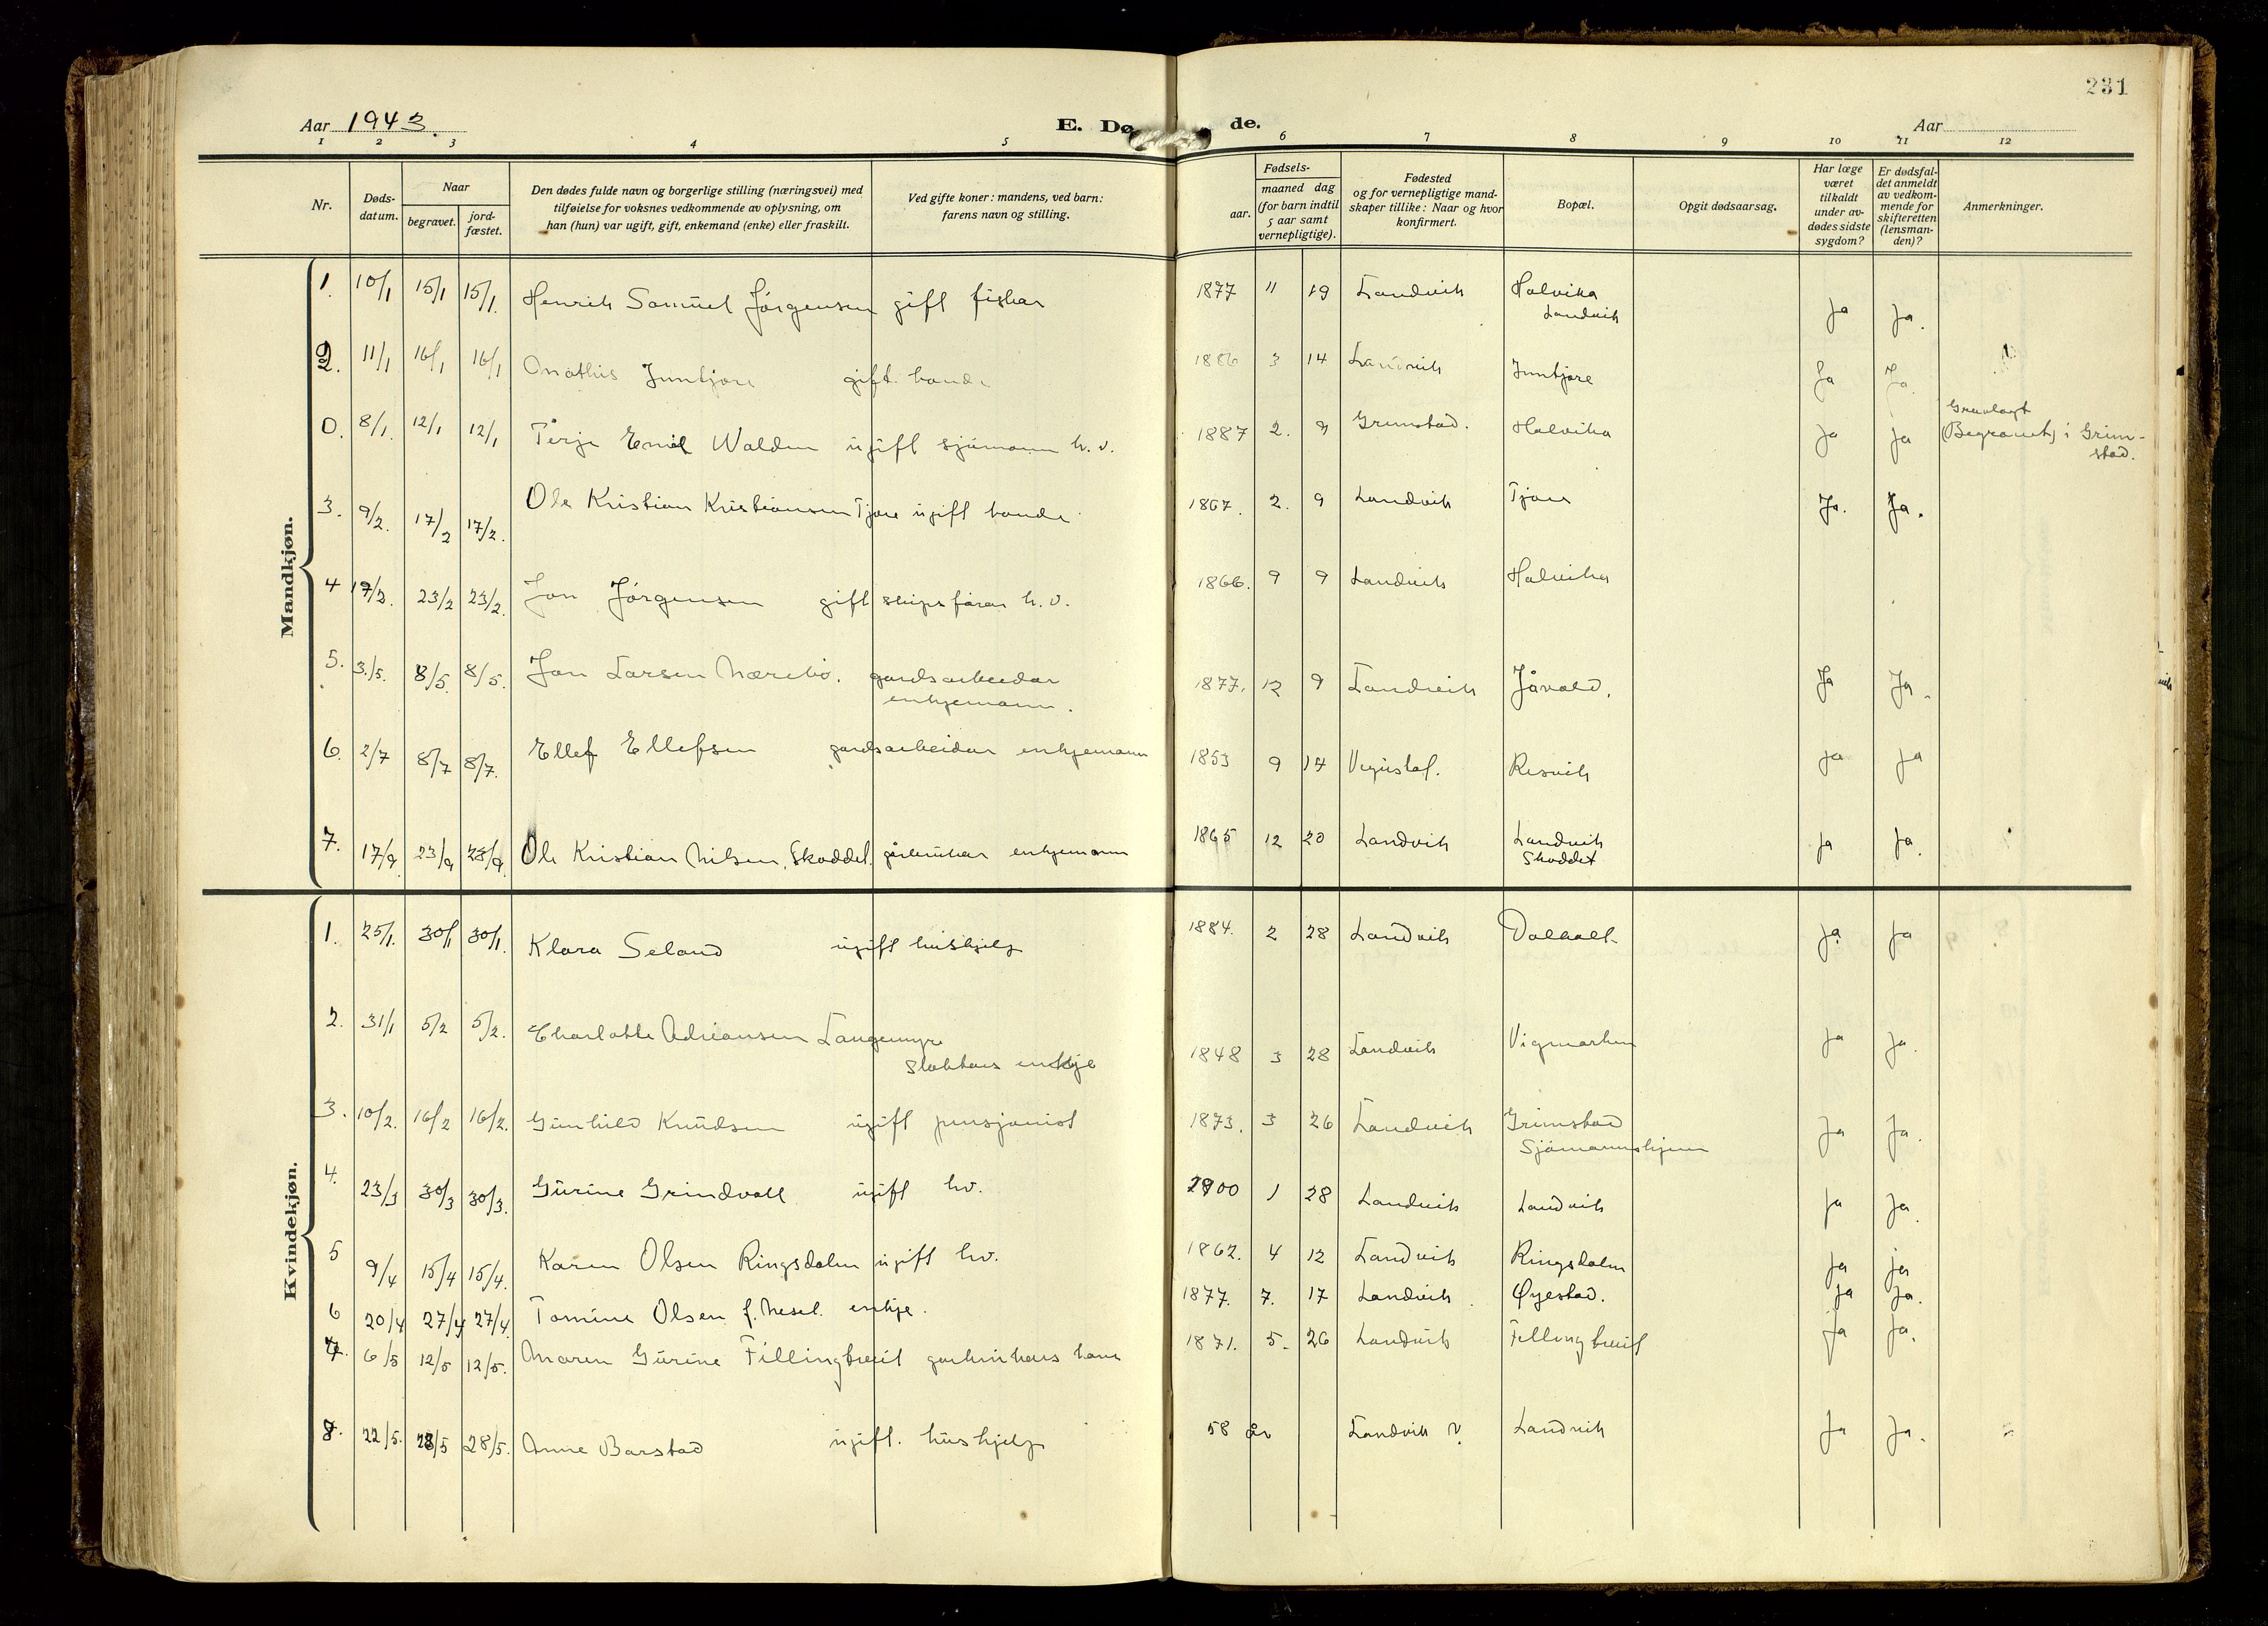 231
Aar 1943.
E. Dø
de.
Aar
1 2 3 4 5 6 7 8 9 10 11 12
Nr.
Døds-
datum.
Naar
begravet.
jord-
fæstet.
Den dødes fulde navn og borgerlige stilling (næringsvei) med
tilføielse for voksnes vedkommende av oplysning, om
han (hun) var ugift, gift, enkemand (enke) eller fraskilt.
Ved gifte koner: mandens, ved barn:
farens navn og stilling.
aar.
Fødsels-
maaned dag
(for barn indtil
5 aar samt
vernepligtige).
Fødested
og for vernepligtige mand-
skaper tillike: Naar og hvor
konfirmert.
Bopæl.
Opgit dødsaarsag.
Har læge
været
tilkaldt
under av-
dødes sidste
sygdom?
Er dødsfal-
det anmeldt
av vedkom-
mende for
skifteretten
(lensman-
den)?
Anmerkninger.
Mandkjøn.
1. 10/1 15/1 15/1. Henrik Samuel Jörgensen gift fiskar 1877 11 19 Landvik Halvika Ja Ja.
Landvik
2. 11/1 16/1 16/1 Mathis Inntjore gift bonde 1886 3 14 Landvik Inntjore Ja Ja
0. 8/1. 12/1 12/1 Terje Emil Walden ugift sjömann h.v. 1887 2. 9 Grimstad. Halvika Ja Ja Gravlagt
(Begravet) i Grim-
stad.
3. 9/2. 17/2 17/2. Ole Kristian Kristiansen Tjore ugift bonde 1867. 2. 9 Landvik Tjore Ja. Ja.
4 17/2. 23/2 23/2. Jon Jörgensen gift skipsförar h.v. 1866. 9 9 Landvik Halvika
5. 3./5. 8/5. 8/5. Jon Larsen Nærebö. gardsarbeidar 1877. 12 9 Landvik Jåvold. Ja Ja.
enkjemann.
6. 2/7 8/7 8/7. Ellef Ellefsen gardsarbeidar enkjemann 1853 9 14 Vegustaf. Resvik Ja Ja
7. 17/9. 23/9 23/9. Ole Kristian Nilsen, Skoddet. gårbrukar enkjemann 1865 12 20 Landvik Landvik Ja Ja.
Skoddet
Kvindekjøn.
1. 25/1. 30/1 30/1. Klara Seland ugift hushjelp 1884. 2 28 Landvik Dalholt Ja Ja
2. 31/1 5/2 5/2. Charlotte Adriansen Langemyr
slaktars enkje 1848 3 28 Landvik Vigmarken Ja Ja.
3. 10/2. 16/2 16/2. Gunhild Knudsen ugift pensjonist 1873. 3 26 Landvik Grimstad Ja Ja.
Sjömannshjem
4. 23/3 30/3 30/3. Gurine Grindvoll ugift hv. 1900 1 28 Landvik Landvik Ja Ja.
5 9/4 15/4 15/4. Karen Olsen Ringsdalen ugift hv. 1862. 4 12 Landvik Ringsdalen Ja ja
6 20/4 27/4 27/4. Tomine Olsen f. Nesel. enkje. 1877. 7. 17 Landvik. Øyestad. Ja Ja.
7. 6/5 12/5 12/5. Maren Gurine Fillingbreit garbrukars kone 1871. 5. 26 Landvik Fillingbreit Ja Ja.
8. 22/5. 28/5 28/5. Anne Barstad ugift. hushjelp 58 år Landvik ? Landvik Ja Ja.